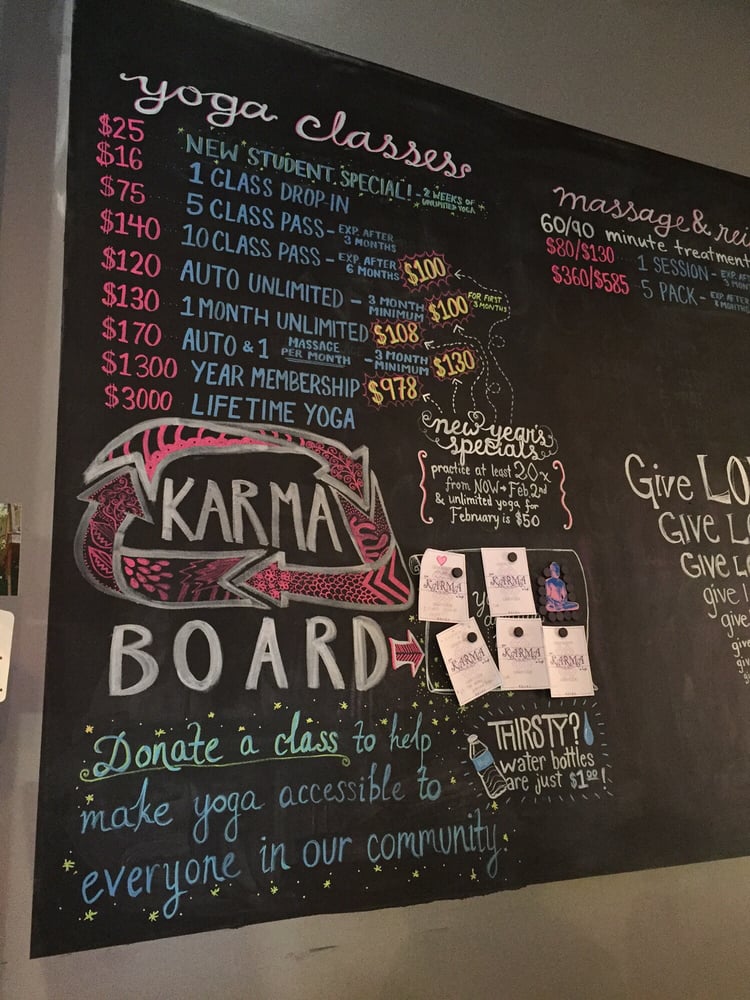 yoga classes
$25 NEW STUDENT SPECIAL! - 2 WEEKS OF UNLIMITED YOGA
$16 1 CLASS DROP-IN
$75 5 CLASS PASS - EXP. AFTER 3 MONTHS
$140 10 CLASS PASS - EXP. AFTER 6 MONTHS $100
$120 AUTO UNLIMITED - 3 MONTH MINIMUM $100 FOR FIRST 3 MONTHS!
$130 1 MONTH UNLIMITED $108
$170 AUTO & 1 MASSAGE PER MONTH - 3 MONTH MINIMUM $130
$1300 YEAR MEMBERSHIP $978
$3000 LIFETIME YOGA
new year's
specials
practice at least 20x
from NOW → Feb 2nd
& unlimited yoga for
February is $50
massage & rei
60/90 minute treatment
$80/$130 1 SESSION - EXP. AF 3 MON
$360/$585 5 PACK - EXP. AFTE MONTHS
KARMA
BOARD
KARMA
KARMA
KARMA
KARMA
KARMA
Donate a class to help
make yoga accessible to
everyone in our community.
THIRSTY?
water bottles
are just $1.00!
Give LO
GIVE L
GIVE LO
give
give
give
give